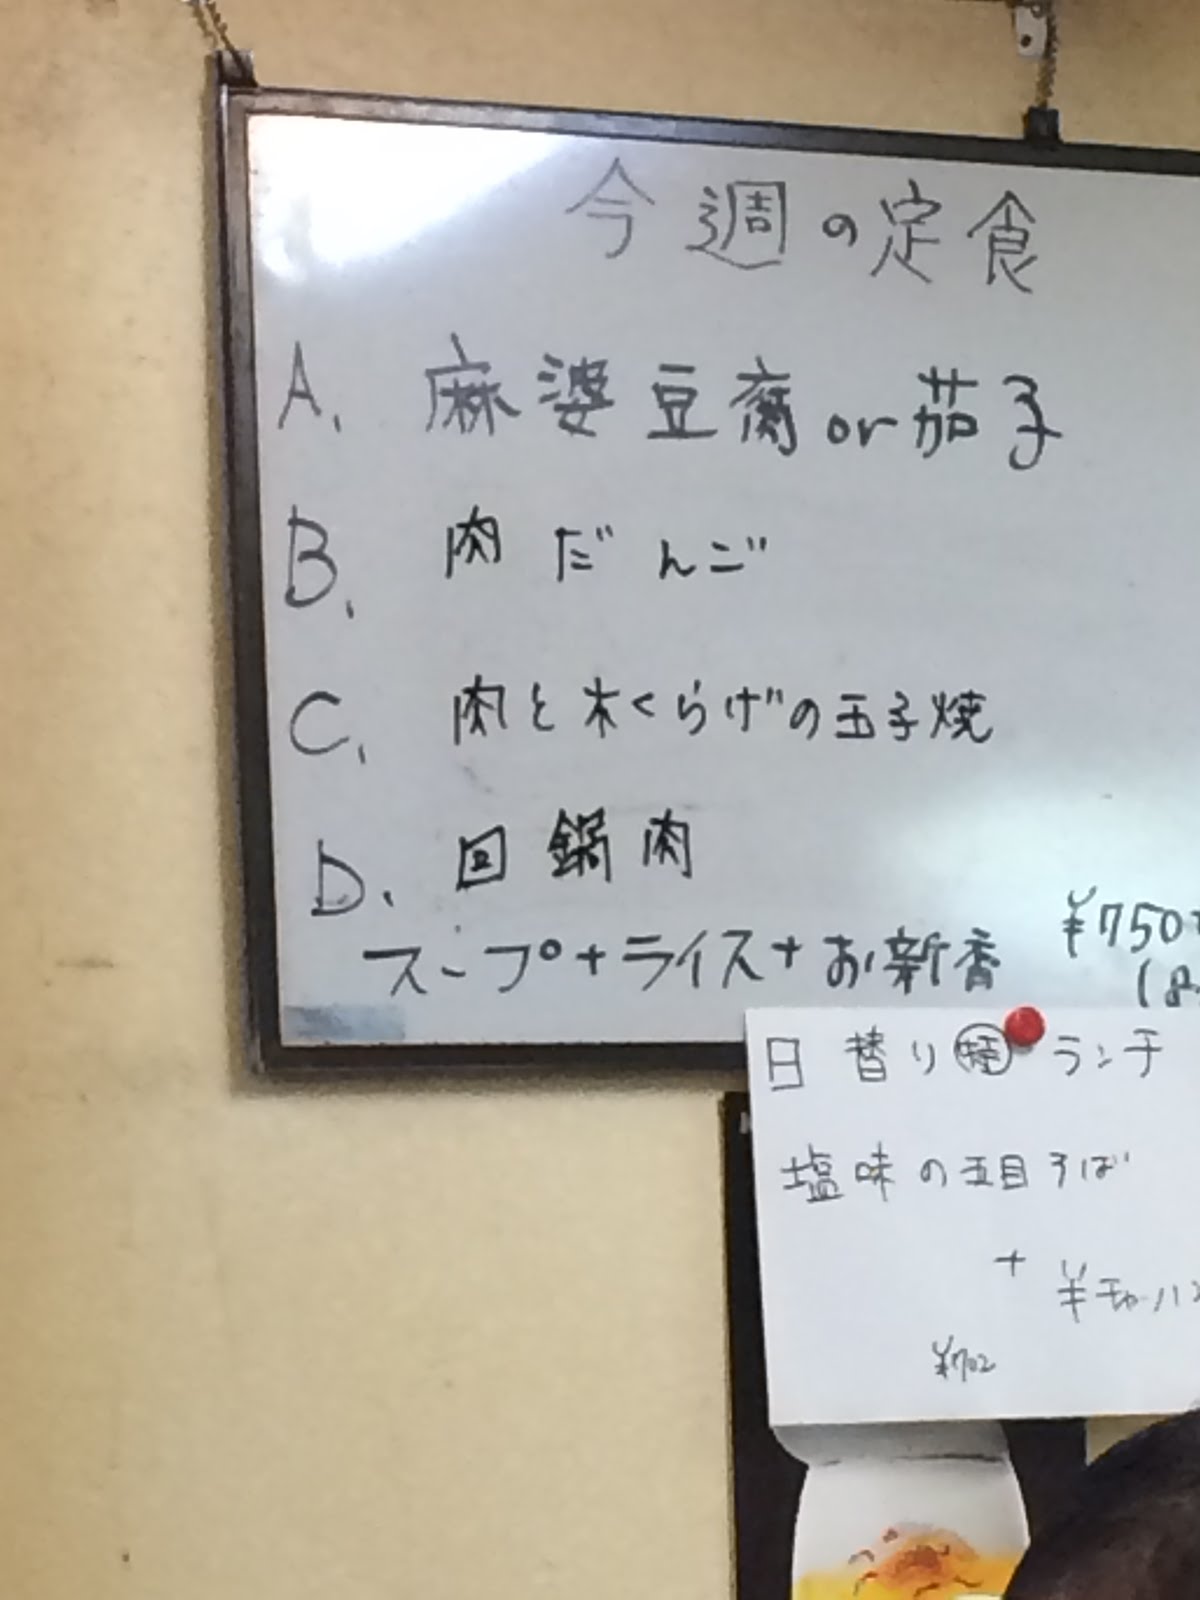 今週の定食
A. 麻婆豆腐or茄子
B. 肉だんご
C. 肉と木くらげの玉子焼
D. 回鍋肉
スープ+ライス+お新香 ¥750
日替り㊕ランチ
塩味の五目そば
+ 半チャーハン
¥702